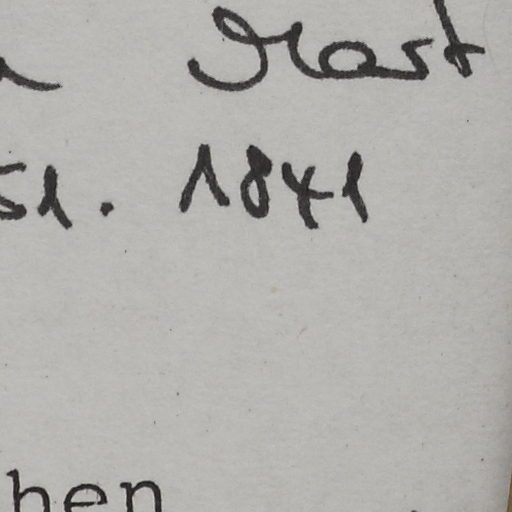 Mast
51. 1841
hen